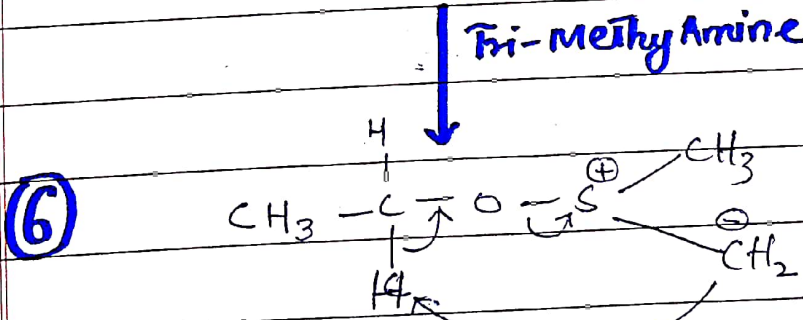 Tri-Methy Amine
H
CH₃ – C – O – S⊕ CH₃
⑥
⊖
CH₂
H